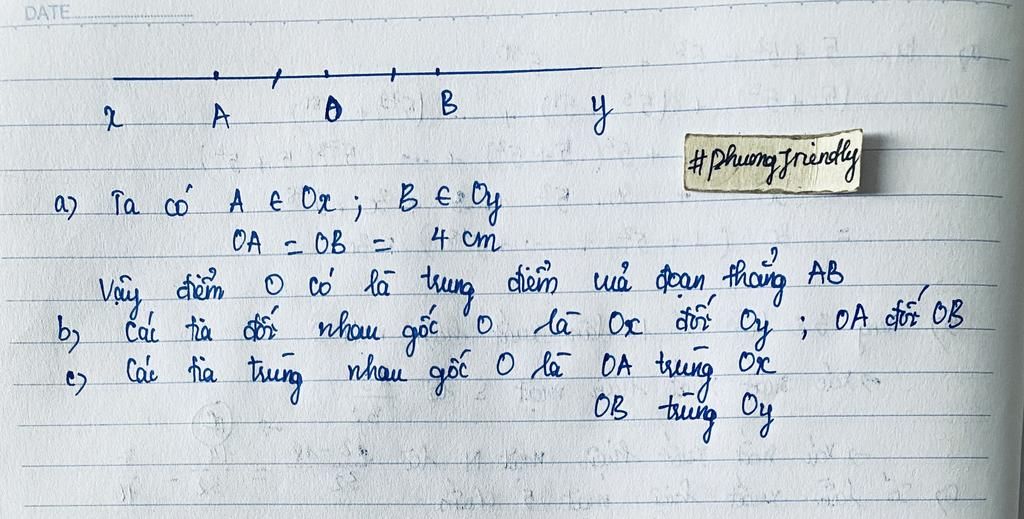 DATE
x A O B y
#phuongfriendly
a) Ta có A ∈ Ox ; B ∈ Oy
OA = OB = 4 cm
Vậy điểm O có là trung điểm của đoạn thẳng AB
b) Các tia đối nhau gốc O là Ox đối Oy ; OA đối OB
c) Các tia trùng nhau gốc O là OA trùng Ox
OB trùng Oy